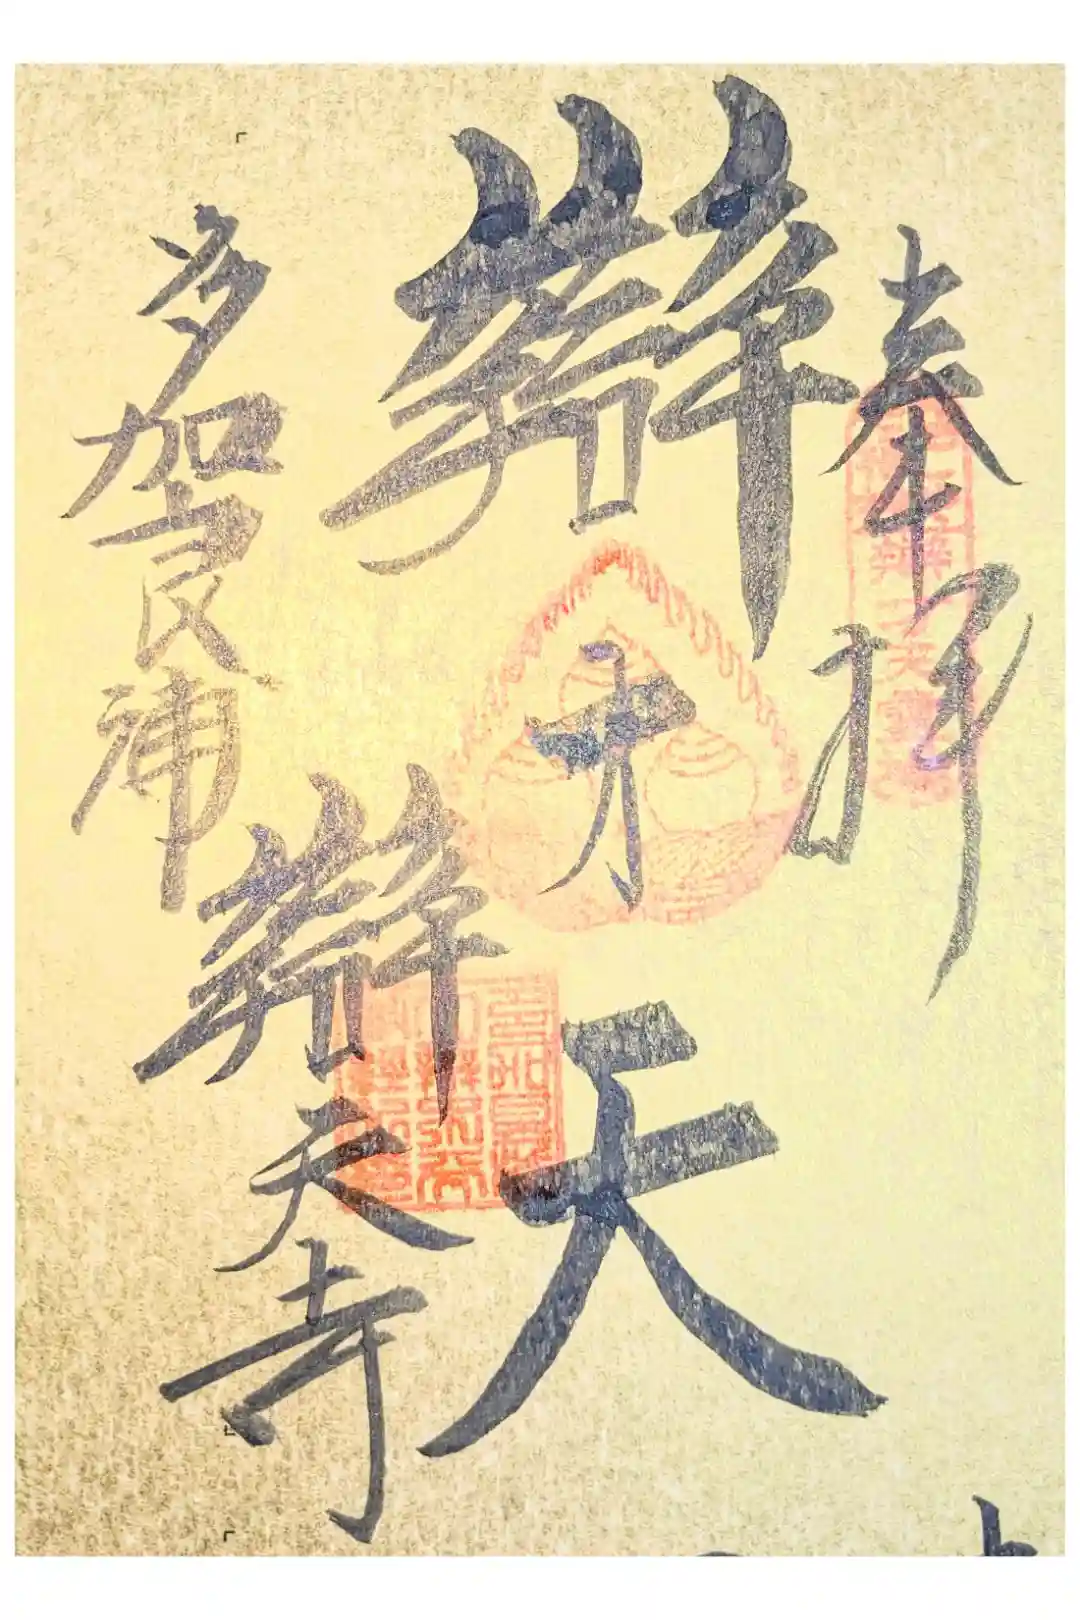 奉拝
辯才天
多加良浦
辯天寺